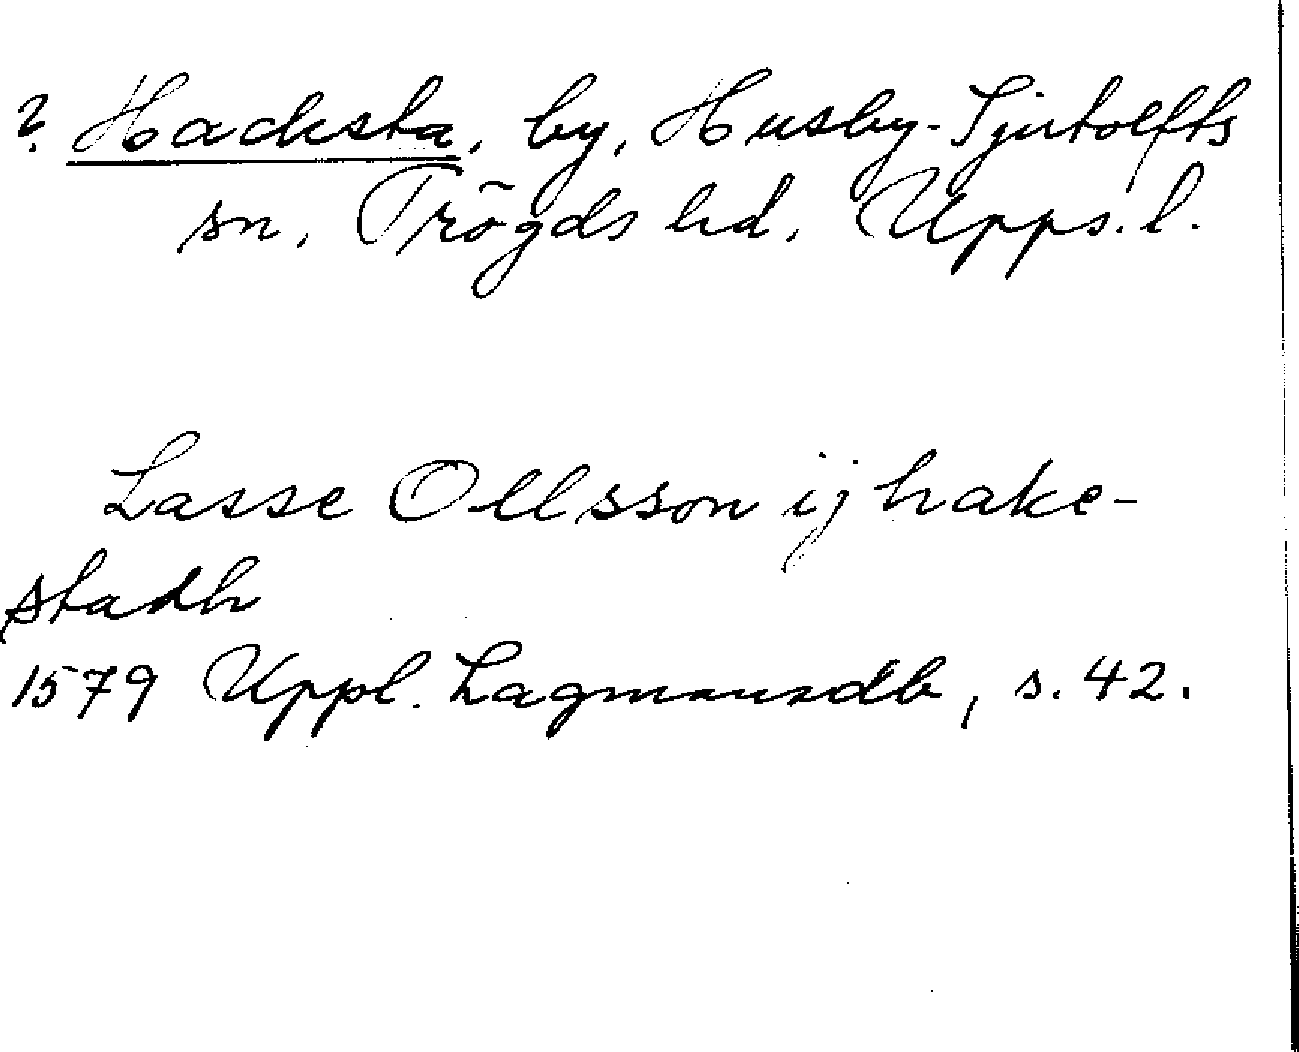 ? Hacksta, by, Husby-Sjutolfts
sn, Trögds hd, Upps. l.
Lasse Ollsson ij hake-
stadh
1579 Uppl. Lagmansdb, s. 42.